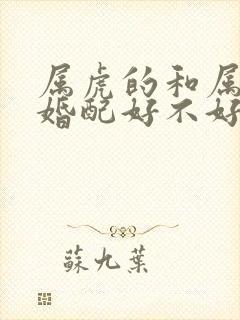 属虎的和属
婚配好不好
蘇九葉